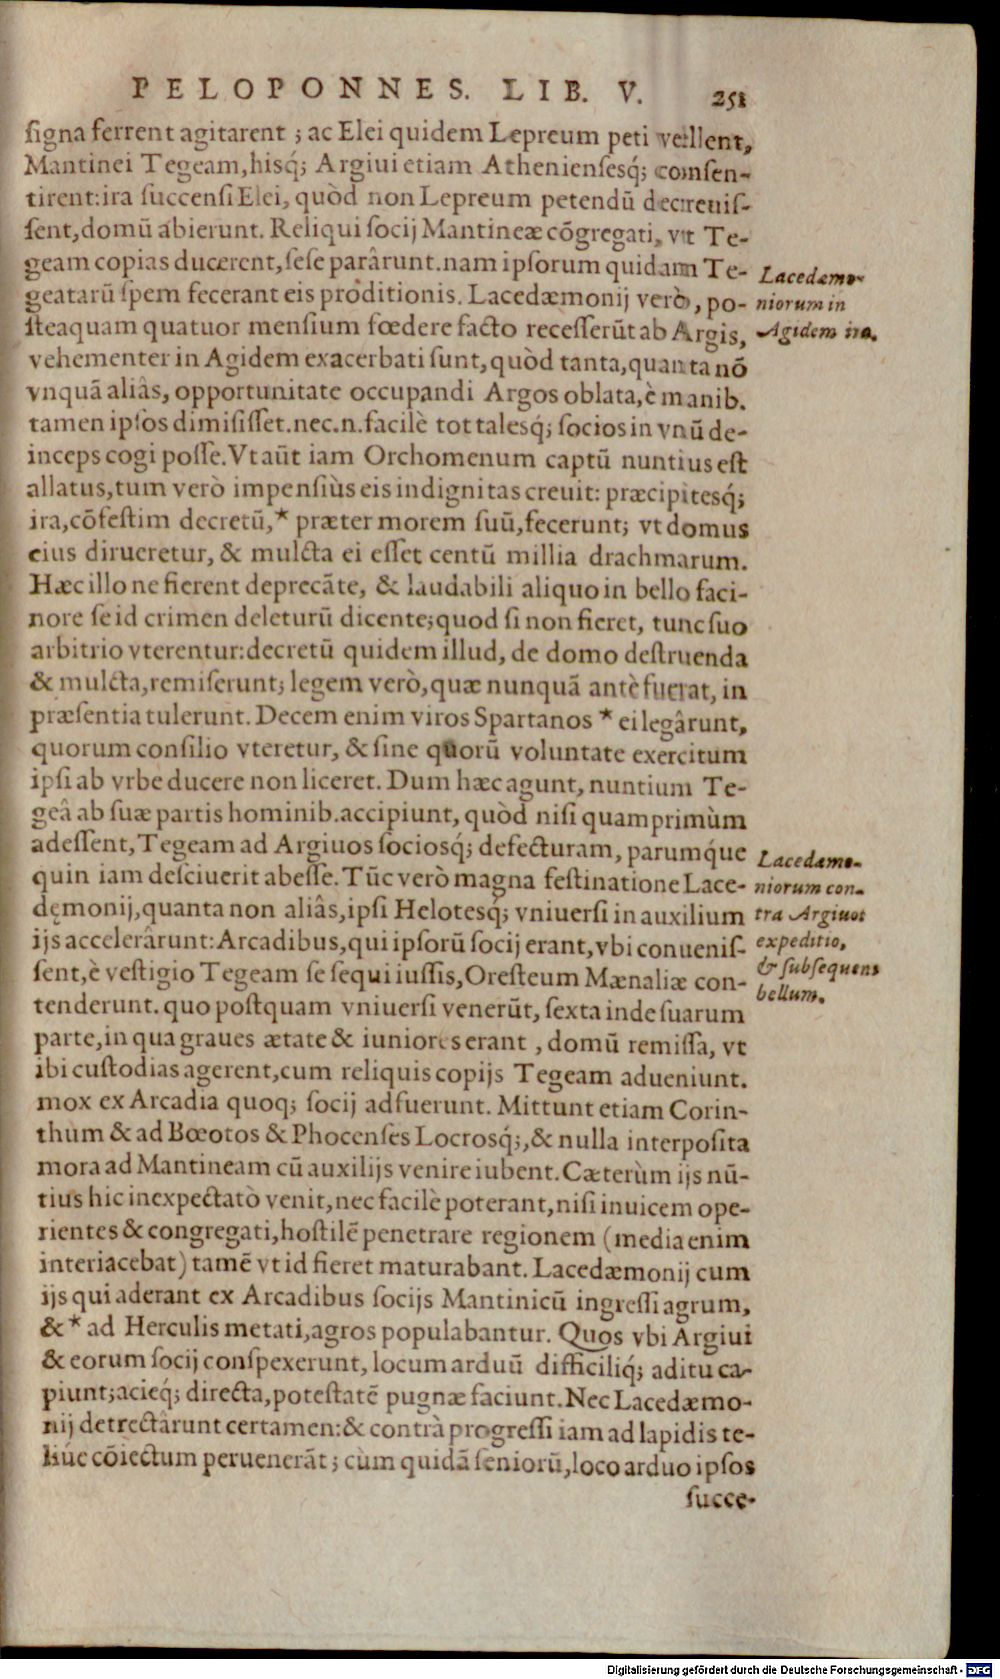 PELOPONNES. LIB. V. 251
signa ferrent agitarent ; ac Elei quidem Lepreum peti vellent,
Mantinei Tegeam, hisq́; Argiui etiam Atheniensesq́; consen-
tirent: ira succensi Elei, quòd non Lepreum petendū decreuis-
sent, domū abierunt. Reliqui socij Mantineæ cōgregati, vt Te-
geam copias ducerent, sese parârunt. nam ipsorum quidam Te-
geatarū spem fecerant eis proditionis. Lacedæmonij verò, po-
steaquam quatuor mensium fœdere facto recesserūt ab Argis,
vehementer in Agidem exacerbati sunt, quòd tanta, quanta nō
vnquā aliâs, opportunitate occupandi Argos oblata, è manib.
tamen ipsos dimisisset. nec. n. facilè tot talesq́; socios in vnū de-
inceps cogi posse. Vt aūt iam Orchomenum captū nuntius est
allatus, tum verò impensiùs eis indignitas creuit: præcipitesq́;
ira, cōfestim decretū, * præter morem suū, fecerunt; vt domus
eius dirueretur, & mulcta ei esset centū millia drachmarum.
Hæc illo ne fierent deprecāte, & laudabili aliquo in bello faci-
nore se id crimen deleturū dicente; quod si non fieret, tunc suo
arbitrio vterentur: decretū quidem illud, de domo destruenda
& mulcta, remiserunt; legem verò, quæ nunquā antè fuerat, in
præsentia tulerunt. Decem enim viros Spartanos * ei legârunt,
quorum consilio vteretur, & sine quorū voluntate exercitum
ipsi ab vrbe ducere non liceret. Dum hæc agunt, nuntium Te-
geâ ab suæ partis hominib. accipiunt, quòd nisi quamprimùm
adessent, Tegeam ad Argiuos sociosq́; defecturam, parumq́ue
quin iam desciuerit abesse. Tūc verò magna festinatione Lace-
dęmonij, quanta non aliâs, ipsi Helotesq́; vniuersi in auxilium
ijs accelerârunt: Arcadibus, qui ipsorū socij erant, vbi conuenis-
sent, è vestigio Tegeam se sequi iussis, Oresteum Mænaliæ con-
tenderunt. quo postquam vniuersi venerūt, sexta inde suarum
parte, in qua graues ætate & iuniores erant , domū remissa, vt
ibi custodias agerent, cum reliquis copijs Tegeam adueniunt.
mox ex Arcadia quoq; socij adfuerunt. Mittunt etiam Corin-
thum & ad Bœotos & Phocenses Locrosq́;, & nulla interposita
mora ad Mantineam cū auxilijs venire iubent. Cæterùm ijs nū-
tius hic inexpectatò venit, nec facilè poterant, nisi inuicem ope-
rientes & congregati, hostilē penetrare regionem (media enim
interiacebat) tamē vt id fieret maturabant. Lacedæmonij cum
ijs qui aderant ex Arcadibus socijs Mantinicū ingressi agrum,
& * ad Herculis metati, agros populabantur. Quos vbi Argiui
& eorum socij conspexerunt, locum arduū difficiliq́; aditu ca-
piunt; acieq́; directa, potestatē pugnæ faciunt. Nec Lacedæmo-
nij detrectârunt certamen: & contrà progressi iam ad lapidis te-
liúe cōiectum peruenerāt ; cùm quidā seniorū, loco arduo ipsos
succe-
Lacedæmo-
niorum in
Agidem ira.
Lacedæmo-
niorum con-
tra Argiuos
expeditio,
& subsequens
bellum.
Digitalisierung gefördert durch die Deutsche Forschungsgemeinschaft - DFG